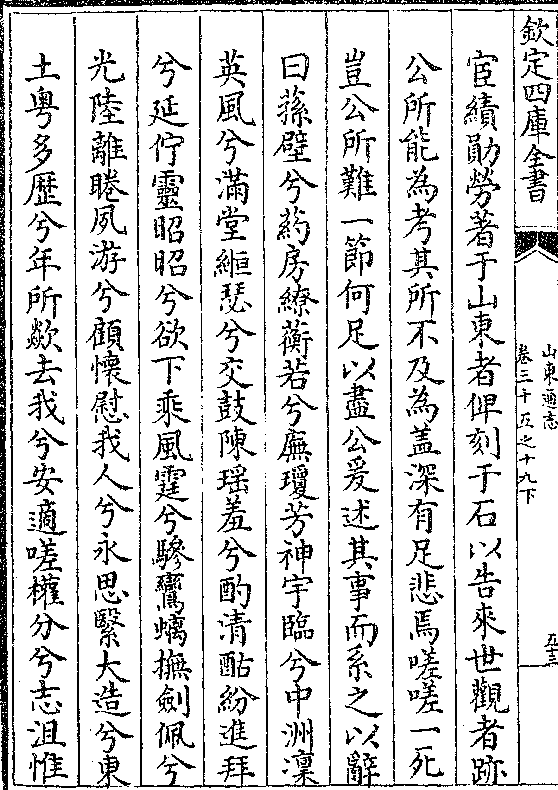 欽定四庫全書
山東通志
卷三十五之十九下
五十三
宦績勛勞著于山東者俾刻于石以告來世觀者跡
公所能為考其所不及為蓋深有足悲焉嗟嗟一死
豈公所難一節何足以盡公爰述其事而系之以辭
曰蓀壁兮葯房繚蘅若兮廡瓊芳神宇臨兮中洲凜
英風兮滿堂絙瑟兮交鼓陳瑶羞兮酌清酤紛進拜
兮延佇靈昭昭兮欲下乘風霆兮驂鸞螭撫劍佩兮
光陸離睠夙游兮顧懷慰我人兮永思繄大造兮東
土粤多歴兮年所歘去我兮安適嗟權分兮志沮惟